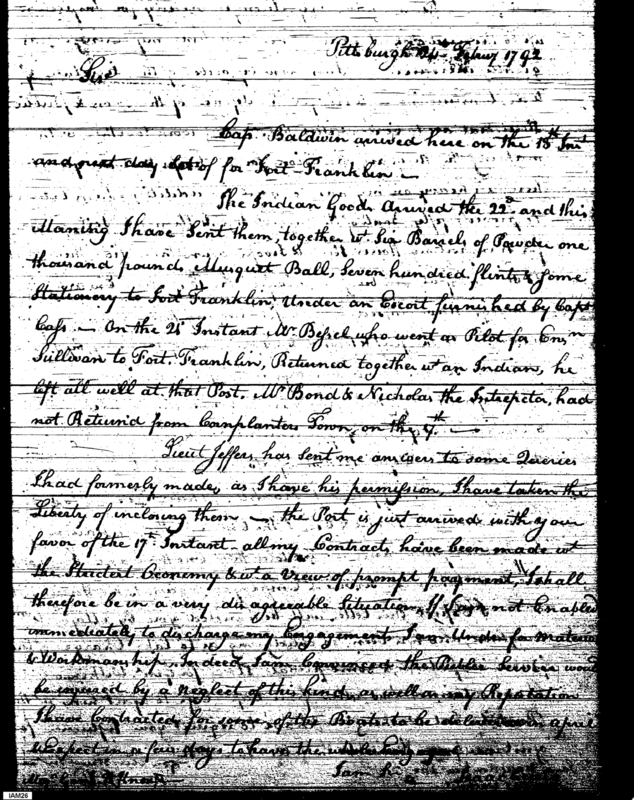 Pittsburgh 24 Febuy 1792
Sir
Cap. Baldwin arrived here on the 18th Inst
and next day set of for Fort-Franklin —
The Indian Goods arrived the 22d and this
Morning I have Sent them, together wt Six Barrels of Powder one
thousand pounds Musquet Ball, Seven hundred flints & some
Stationery to Fort Franklin Under an Escort furnished by Capt
Cass — On the 21t Instant Mr. who went as Pilot for Ensn
Sullivan to Fort. Franklin, Returned together wt an Indian, he
left all well at that Post. Mr Bond & Nicholas the Intrepeter, had
not Return'd from Cornplanters Town, on the th —
Lieut Jeffers has sent me answers to some Queries
I had formerly made, as I have his permission, I have taken the
Liberty of inclosing them — the Post is just arrived with your
favor of the 17t Instant all my Contracts have been made wt
the Strictest Oconomy & wt a View of prompt payment, I shall
therefore be in a very disagreeable Situation, If I am not Enabled
immediately to discharge my Engagements I am Under for Materials
& Workmanship. Indeed I am Convinced the Public Service would
be injured by a Neglect of this kind, as well as my Reputation
I have Contracted for some of the Boats to be in april
expect in a few days to have the
I am
Knox
IAM26